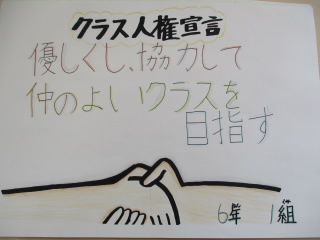 クラス人権宣言
優しくし、協力して
仲のよいクラスを
目指す
6年 1組